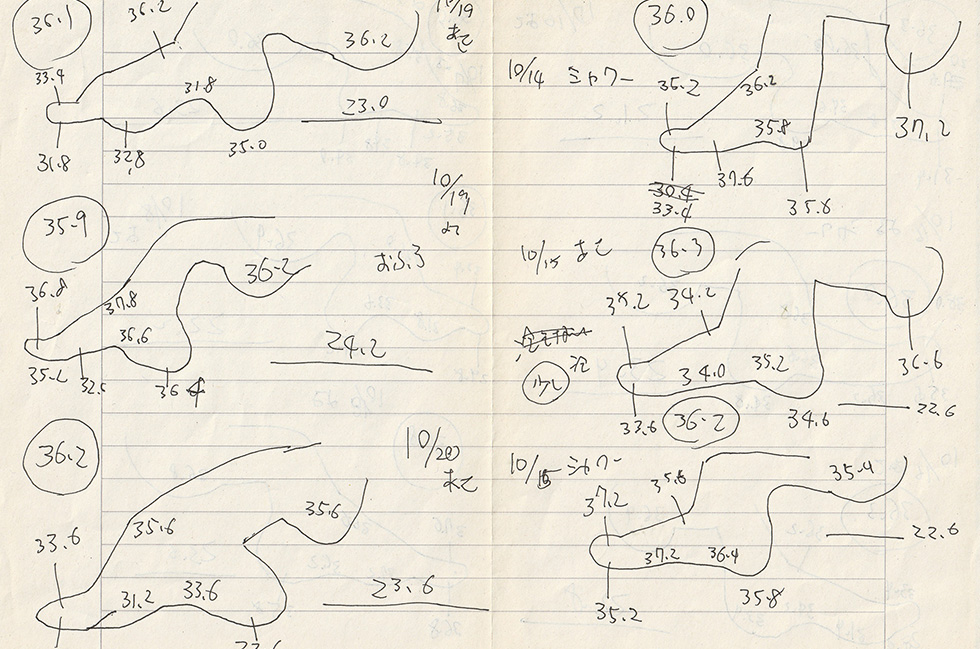 36.1
36.2
10/19
33.4
36.2
31.8
23.0
31.8
32.8
35.0
10/19
35.9
おふろ
36.8
37.8
36.2
36.6
24.2
35.2
36.4
10/20
36.2
33.6
35.6
35.6
31.2
33.6
23.6
36.0
10/14 シャワー
35.2
36.2
35.8
37.2
30.4
33.4
37.6
35.8
10/15
36.3
34.2
34.0
35.2
36.6
33.6
34.6
22.6
少し
36.2
10/15 シャワー
37.2
35.4
22.6
37.2
36.4
35.2
35.8